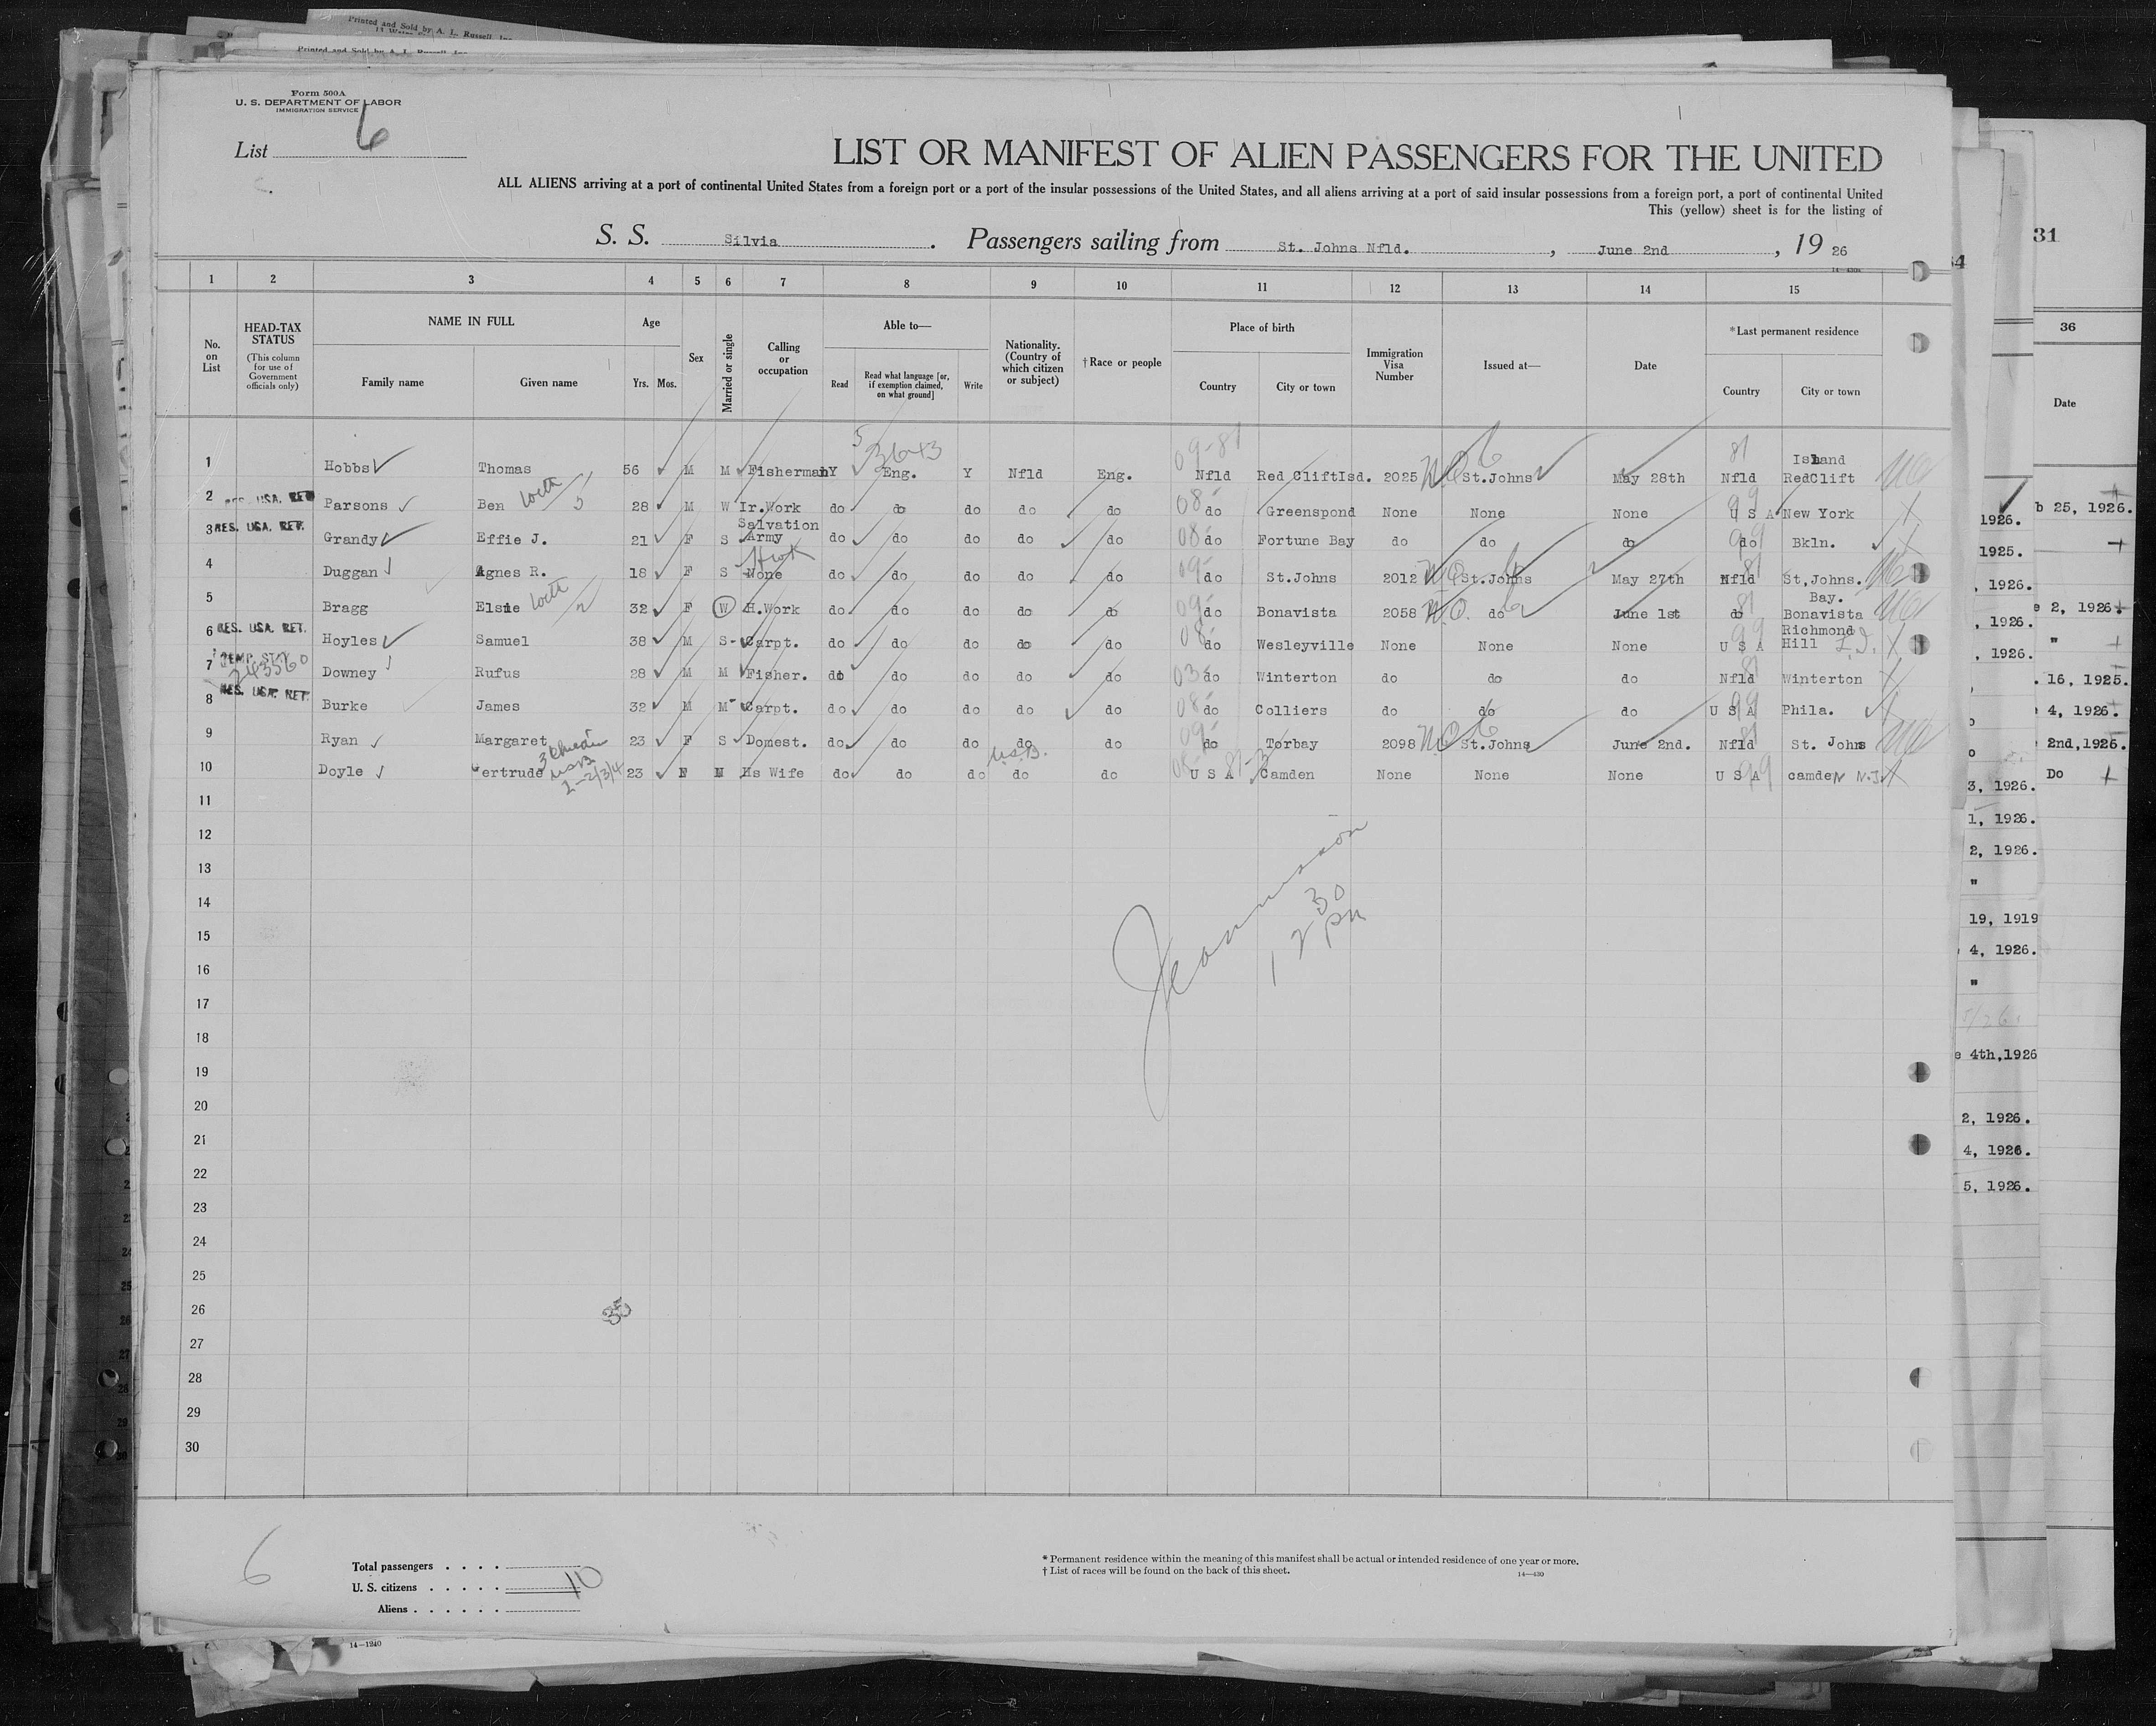 Printed and Sold by A. L. Russell, Inc.
Printed and Sold by A. L. Russell, Inc.
Form 500A
U. S. DEPARTMENT OF LABOR
IMMIGRATION SERVICE
List 6
LIST OR MANIFEST OF ALIEN PASSENGERS FOR THE UNITED
ALL ALIENS arriving at a port of continental United States from a foreign port or a port of the insular possessions of the United States, and all aliens arriving at a port of said insular possessions from a foreign port, a port of continental United
This (yellow) sheet is for the listing of
S. S. Silvia. Passengers sailing from St. Johns Nfld., June 2nd, 19 26
1 2 3 4 5 6 7 8 9 10 11 12 13 14 15
No. on List
HEAD-TAX STATUS (This column for use of Government officials only)
NAME IN FULL
Family name Given name
Age
Yrs. Mos.
Sex
Married or single
Calling or occupation
Able to—
Read
Read what language [or, if exemption claimed, on what ground]
Write
Nationality. (Country of which citizen or subject)
†Race or people
Place of birth
Country City or town
Immigration Visa Number
Issued at—
Date
*Last permanent residence
Country City or town
1 Hobbs Thomas 56 M M Fisherman Y Eng. Y Nfld Eng. Nfld Red CliftIsd. 2025 St.Johns May 28th Nfld Island RedClift
2 RES. USA. RET. Parsons Ben 28 M W Ir.Work do do do do do do Greenspond None None None U S A New York
3 RES. USA. RET. Grandy Effie J. 21 F S Salvation Army do do do do do do Fortune Bay do do do do Bkln.
4 Duggan Agnes R. 18 F S None do do do do do do St.Johns 2012 St.Johns May 27th Nfld St,Johns.
5 Bragg Elsie 32 F W H.Work do do do do do do Bonavista 2058 do June 1st do Bay. Bonavista
6 RES. USA. RET. Hoyles Samuel 38 M S Carpt. do do do do do do Wesleyville None None None U S A Richmond Hill L.I.
7 TEMP. STAY 243560 Downey Rufus 28 M M Fisher. do do do do do do Winterton do do do Nfld Winterton
8 RES. USA. RET. Burke James 32 M M Carpt. do do do do do do Colliers do do do U S A Phila.
9 Ryan Margaret 23 F S Domest. do do do do do do Torbay 2098 St.Johns June 2nd. Nfld St. Johns
10 Doyle Gertrude 23 F M Hs Wife do do do do do U S A Camden None None None U S A camden N.J.
11
12
13
14
15
16
17
18
19
20
21
22
23
24
25
26
27
28
29
30
12 30 pm
35
6
Total passengers
U. S. citizens 10
Aliens
* Permanent residence within the meaning of this manifest shall be actual or intended residence of one year or more.
† List of races will be found on the back of this sheet.
14—430
14—1240
31
36
Date
b 25, 1926.
e 2, 1926.
"
. 16, 1925.
4, 1926.
2nd,1926.
Do
1926.
1925.
, 1926.
, 1926.
, 1926.
3, 1926.
1, 1926.
2, 1926.
"
19, 1919
4, 1926.
"
e 4th,1926
2, 1926.
4, 1926.
5, 1926.